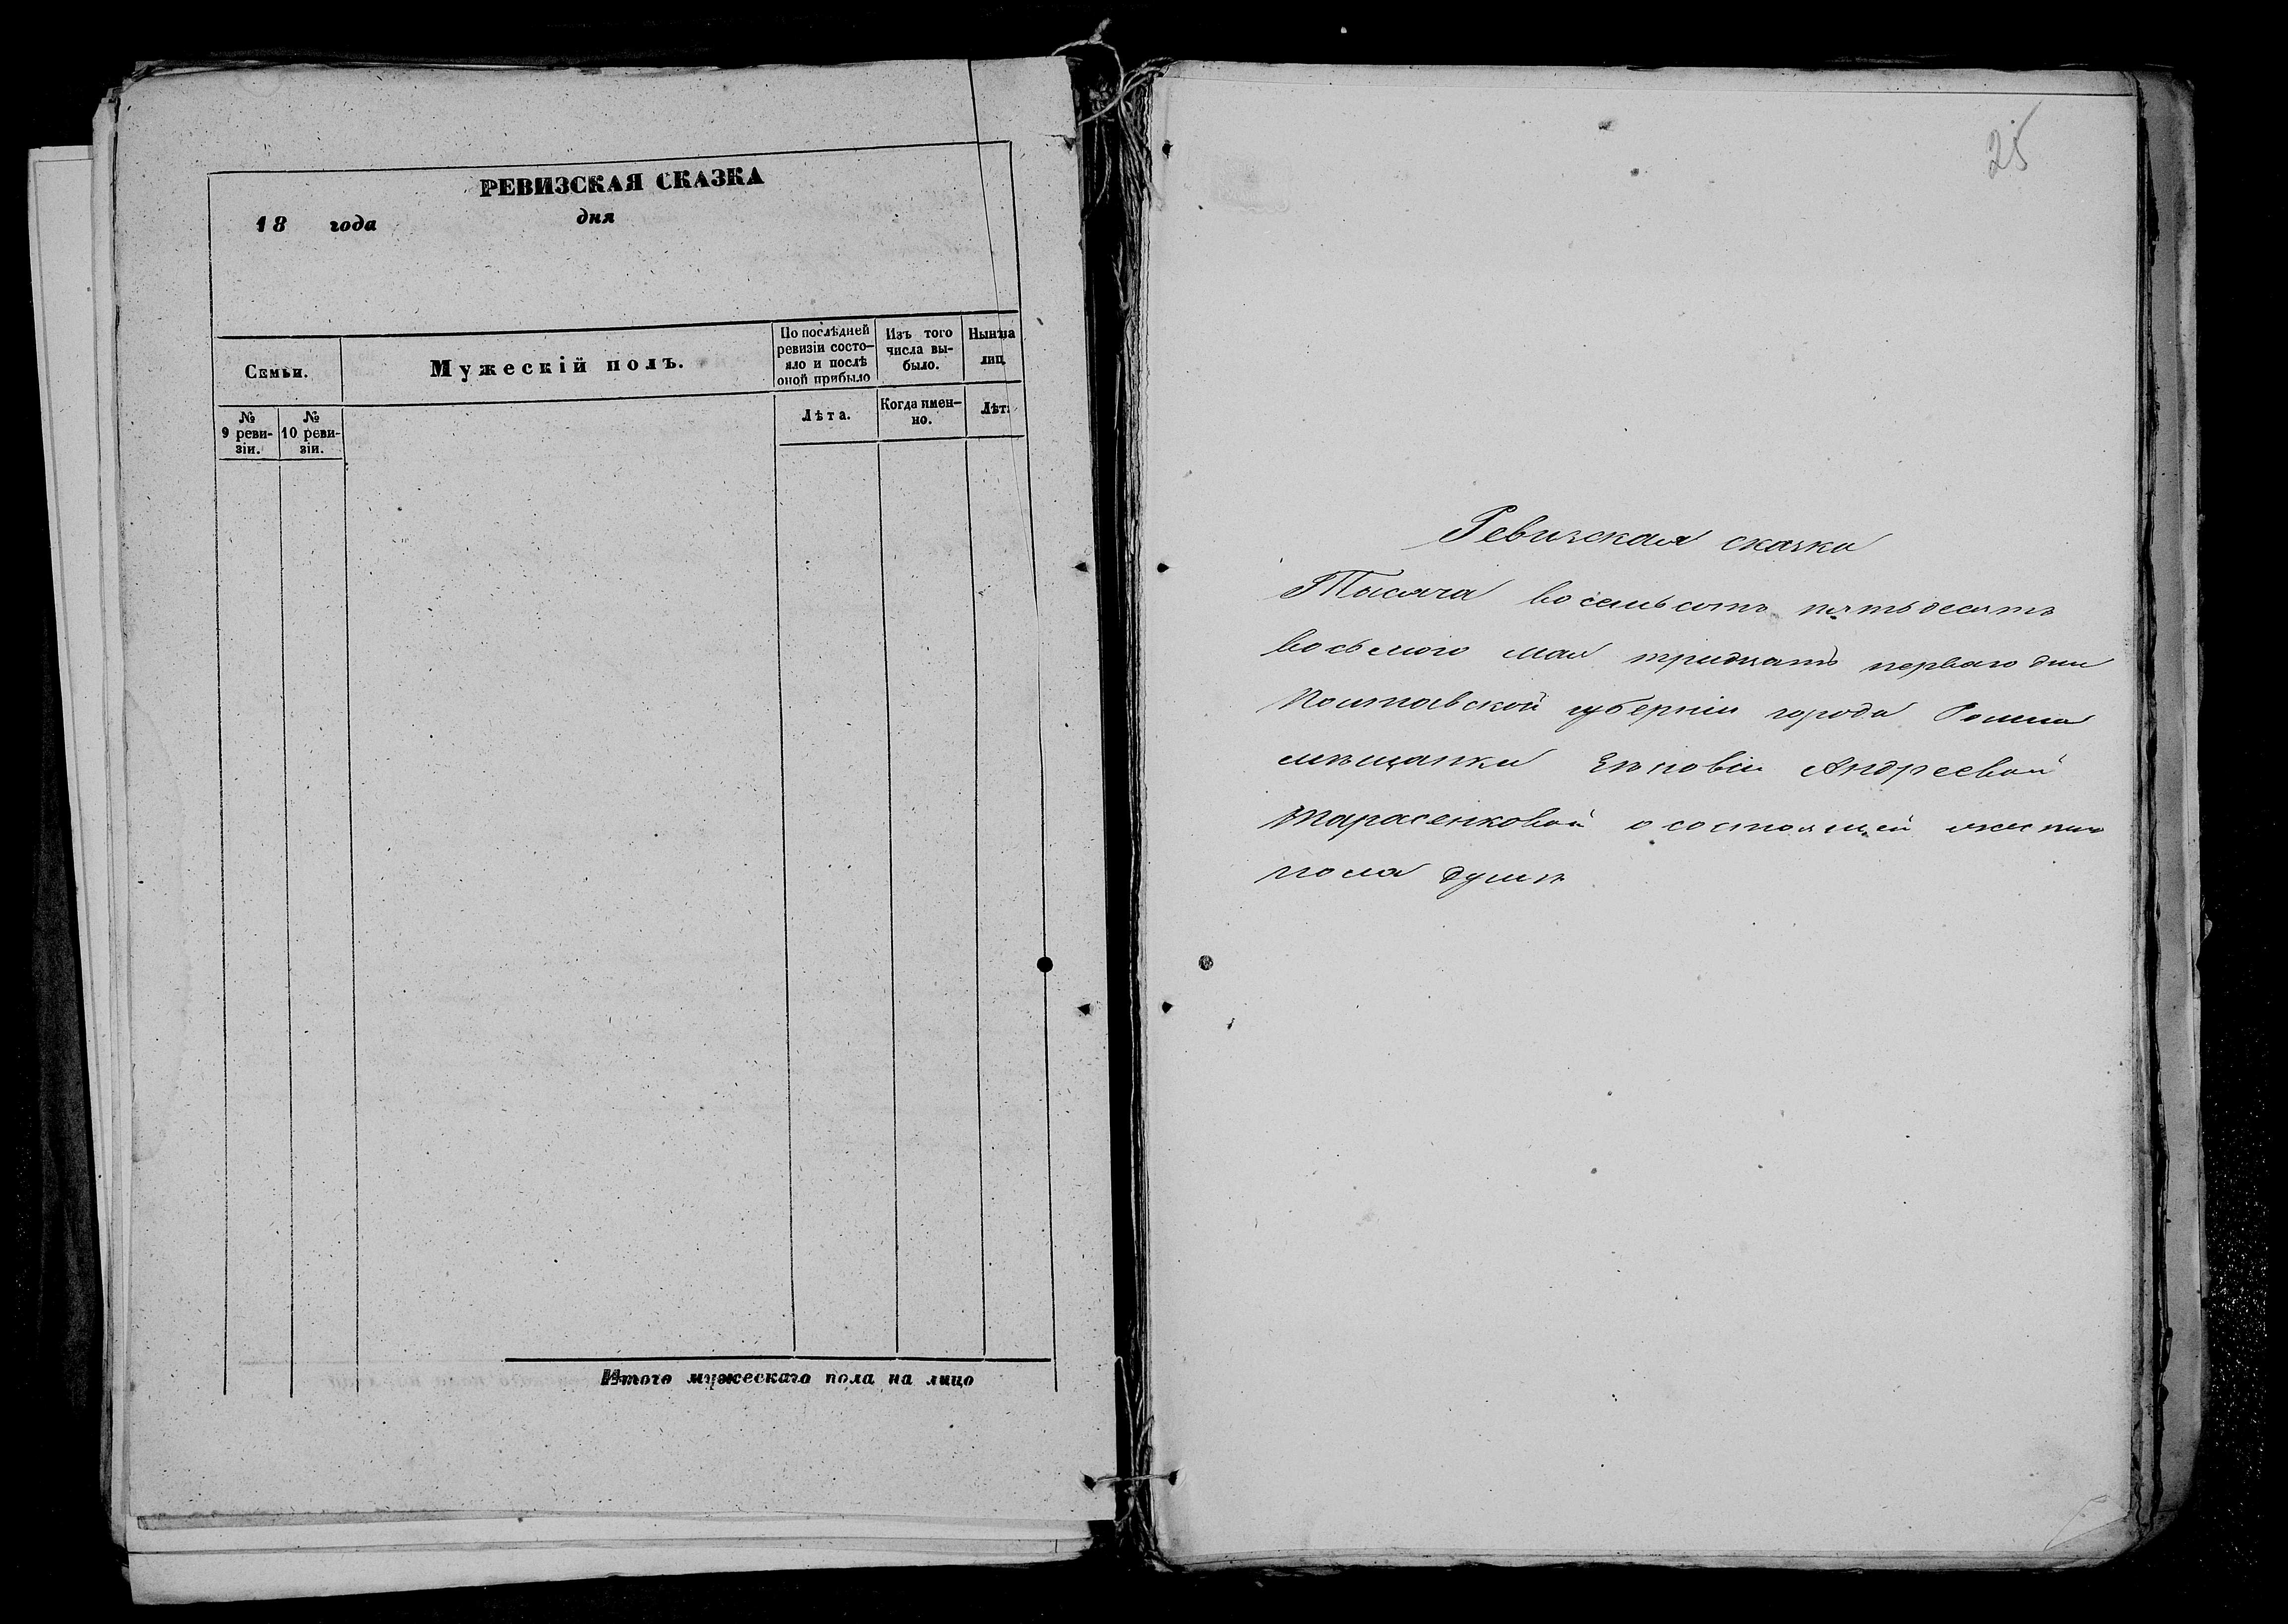 РЕВИЗСКАЯ СКАЗКА
18 года дня
Семьи.
Мужескій полъ.
По послѣдней
ревизіи состо-
яло и послѣ
оной прибыло
Изъ того
числа вы-
было.
Нынѣ на
лиц
№
9 реви-
зіи.
№
10 реви-
зіи.
Лѣта.
Когда имен-
но.
Лѣт.
Итого мужескаго пола на лицо
25
Ревизская сказка
Тысяча восемьсотъ пятьдесятъ
восьмого мая тридцать перваго дня
Полтавской губерніи города Ромна
мѣщанки Зѣновіи Андреевой
Тарасенковой о состоящей женска
пола душѣ